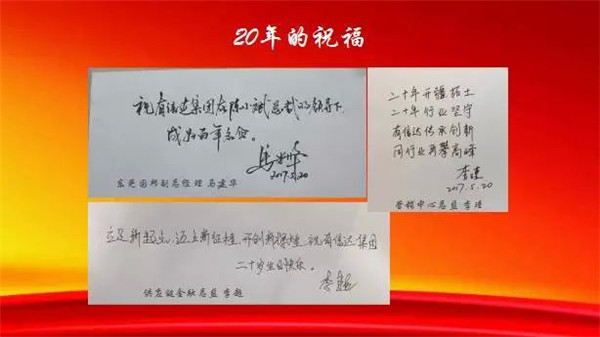 20年的祝福
祝有信达集团在陈小斌总裁的领导下,
成为百年名企。
2017.5.20
东莞国邦副总经理 马建华
二十年开疆拓土
二十年行业坚守
有信达传承创新
同行业再攀高峰
2017.5.20
营销中心总监 李瑾
立足新起点,迈上新征程,开创新辉煌,祝有信达集团
二十岁生日快乐。
李超
供应链金融总监 李超